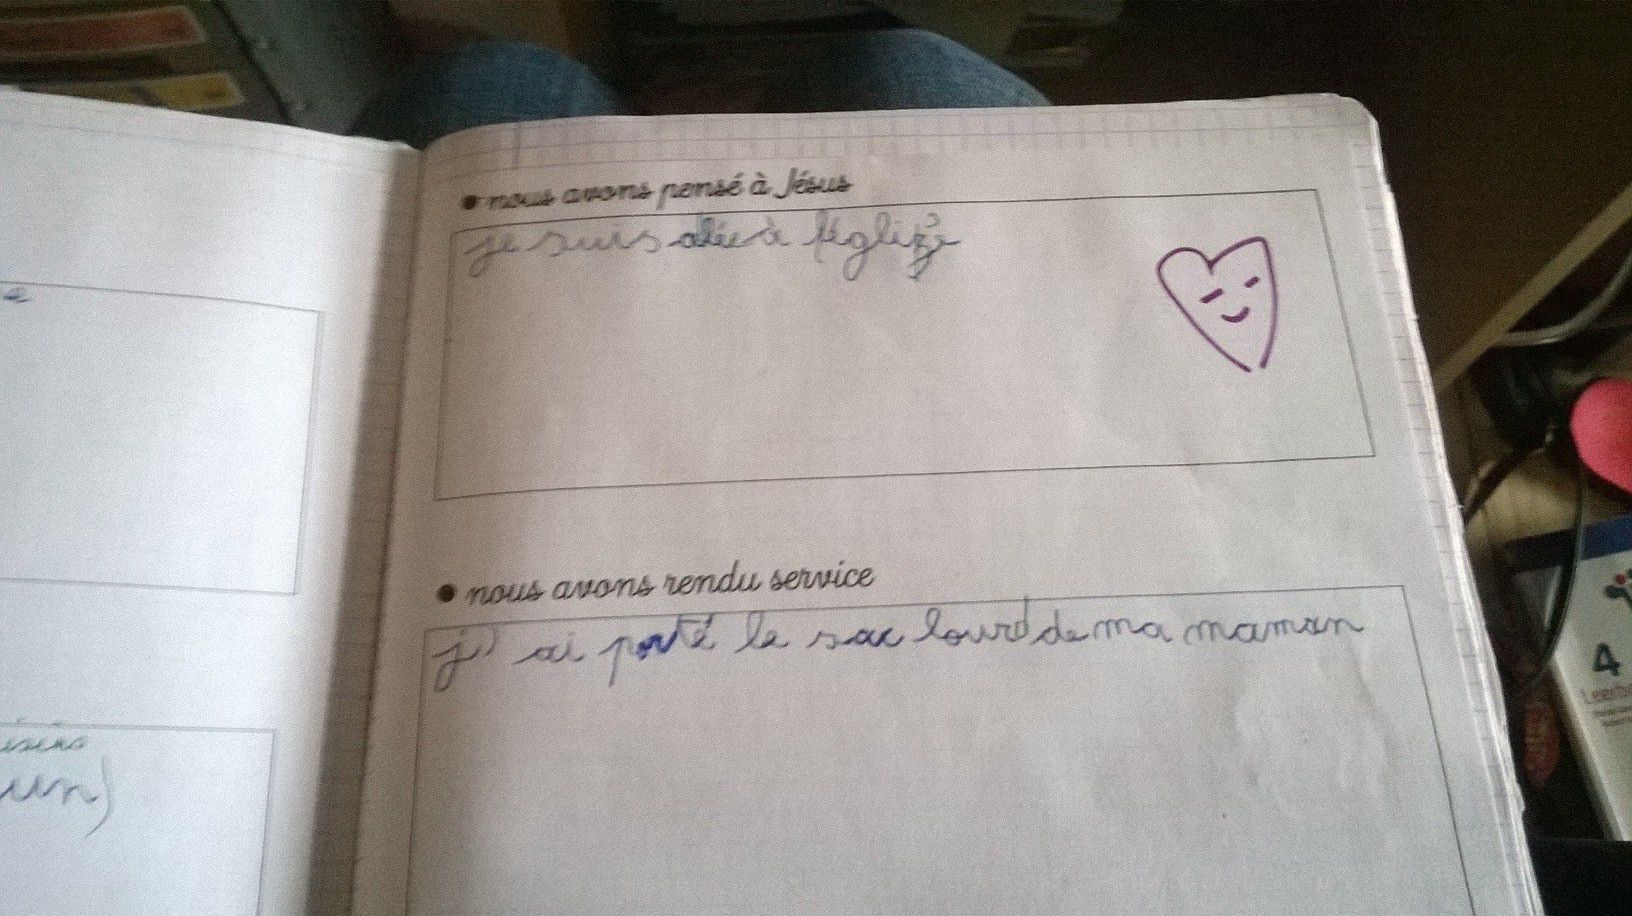 • nous avons pensé à Jésus
je suis alée à l'églize
• nous avons rendu service
j'ai porté le sac lourd de ma maman
un)
4